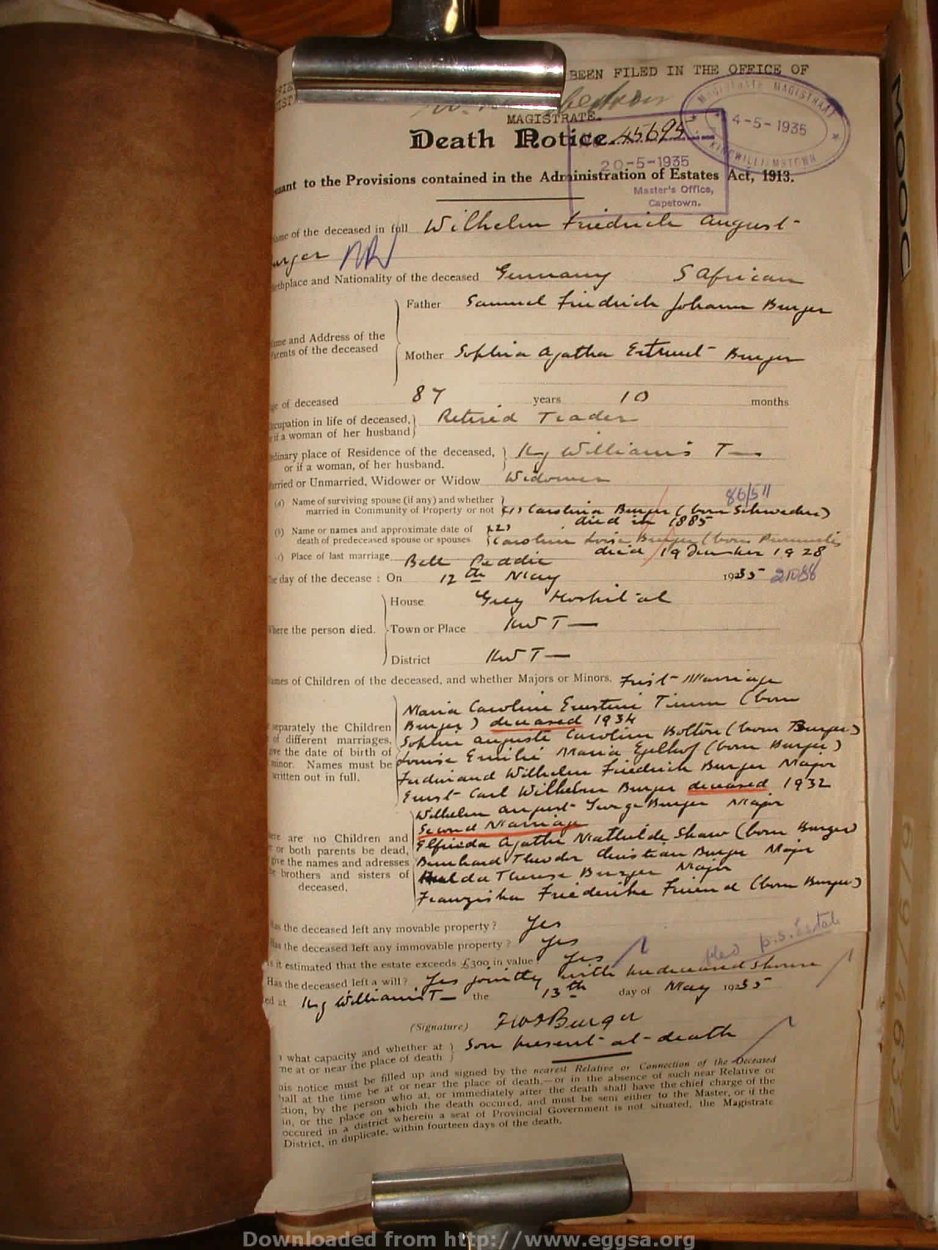 BEEN FILED IN THE OFFICE OF
MAGISTRATE.
MAGISTRATE
4-5-1935
KINGWILLIAMSTOWN
Death Notice. 45695
20-5-1935
Master's Office,
Capetown.
to the Provisions contained in the Administration of Estates Act, 1913.
of the deceased in full Wilhelm Friedrich August-
urger
and Nationality of the deceased Germany S African
Father Samuel Friedrich Johann Burger
and Address of the
of the deceased
Mother Sophia Agatha Burger
of deceased 87 years 10 months
in life of deceased, Retired Trader
if a woman of her husband
place of Residence of the deceased, Kg Williams T—
or if a woman, of her husband.
or Unmarried, Widower or Widow Widower
86/511
(a) Name of surviving spouse (if any) and whether
married in Community of Property or not (1) Carolina Burger (born Schweder)
died in 1885
(b) Name or names and approximate date of (2)
death of predeceased spouse or spouses Caroline Louise Burger (born
died 19 December 1928
(c) Place of last marriage Bell Peddie
day of the decease : On 12th May 1935
House Grey Hospital
where the person died. Town or Place KWT—
District KWT—
of Children of the deceased, and whether Majors or Minors. First Marriage
Maria Caroline Ernstine Timm (born
separately the Children Burger) deceased 1934
of different marriages, Sophie Auguste Caroline Botton (born Burger)
the date of birth of Louise Emilie Maria Egelhof (born Burger)
minor. Names must be
written out in full. Ferdinand Wilhelm Friedrich Burger Major
Ernst Carl Wilhelm Burger deceased 1932
Wilhelm August George Burger Major
Second Marriage
are no Children and Elfrieda Agathe Mathilde Shaw (born Burger)
or both parents be dead,
give the names and adresses Bernhard Theodor Christian Burger Major
brothers and sisters of Hulda Therese Burger Major
deceased.
Franziska Friederike Friend (born Burger)
the deceased left any movable property? Yes
the deceased left any immovable property? Yes
is it estimated that the estate exceeds £300 in value? Yes
p.s. Estate
Has the deceased left a will? Yes jointly with predeceased spouse
at Kg Williams T— the 13th day of May 1935
(Signature) FWF Burger
what capacity and whether at Son present at death
at or near the place of death
notice must be filled up and signed by the nearest Relative or Connection of the Deceased
shall at the time be at or near the place of death,—or in the absence of such near Relative or
by the person who at, or immediately after the death shall have the chief charge of the
in, or the place on which the death occured, and must be sent either to the Master, or if the
occured in a district wherein a seat of Provincial Government is not situated, the Magistrate
District, in duplicate, within fourteen days of the death.
MOOC
6/9/4635
Downloaded from http://www.eggsa.org